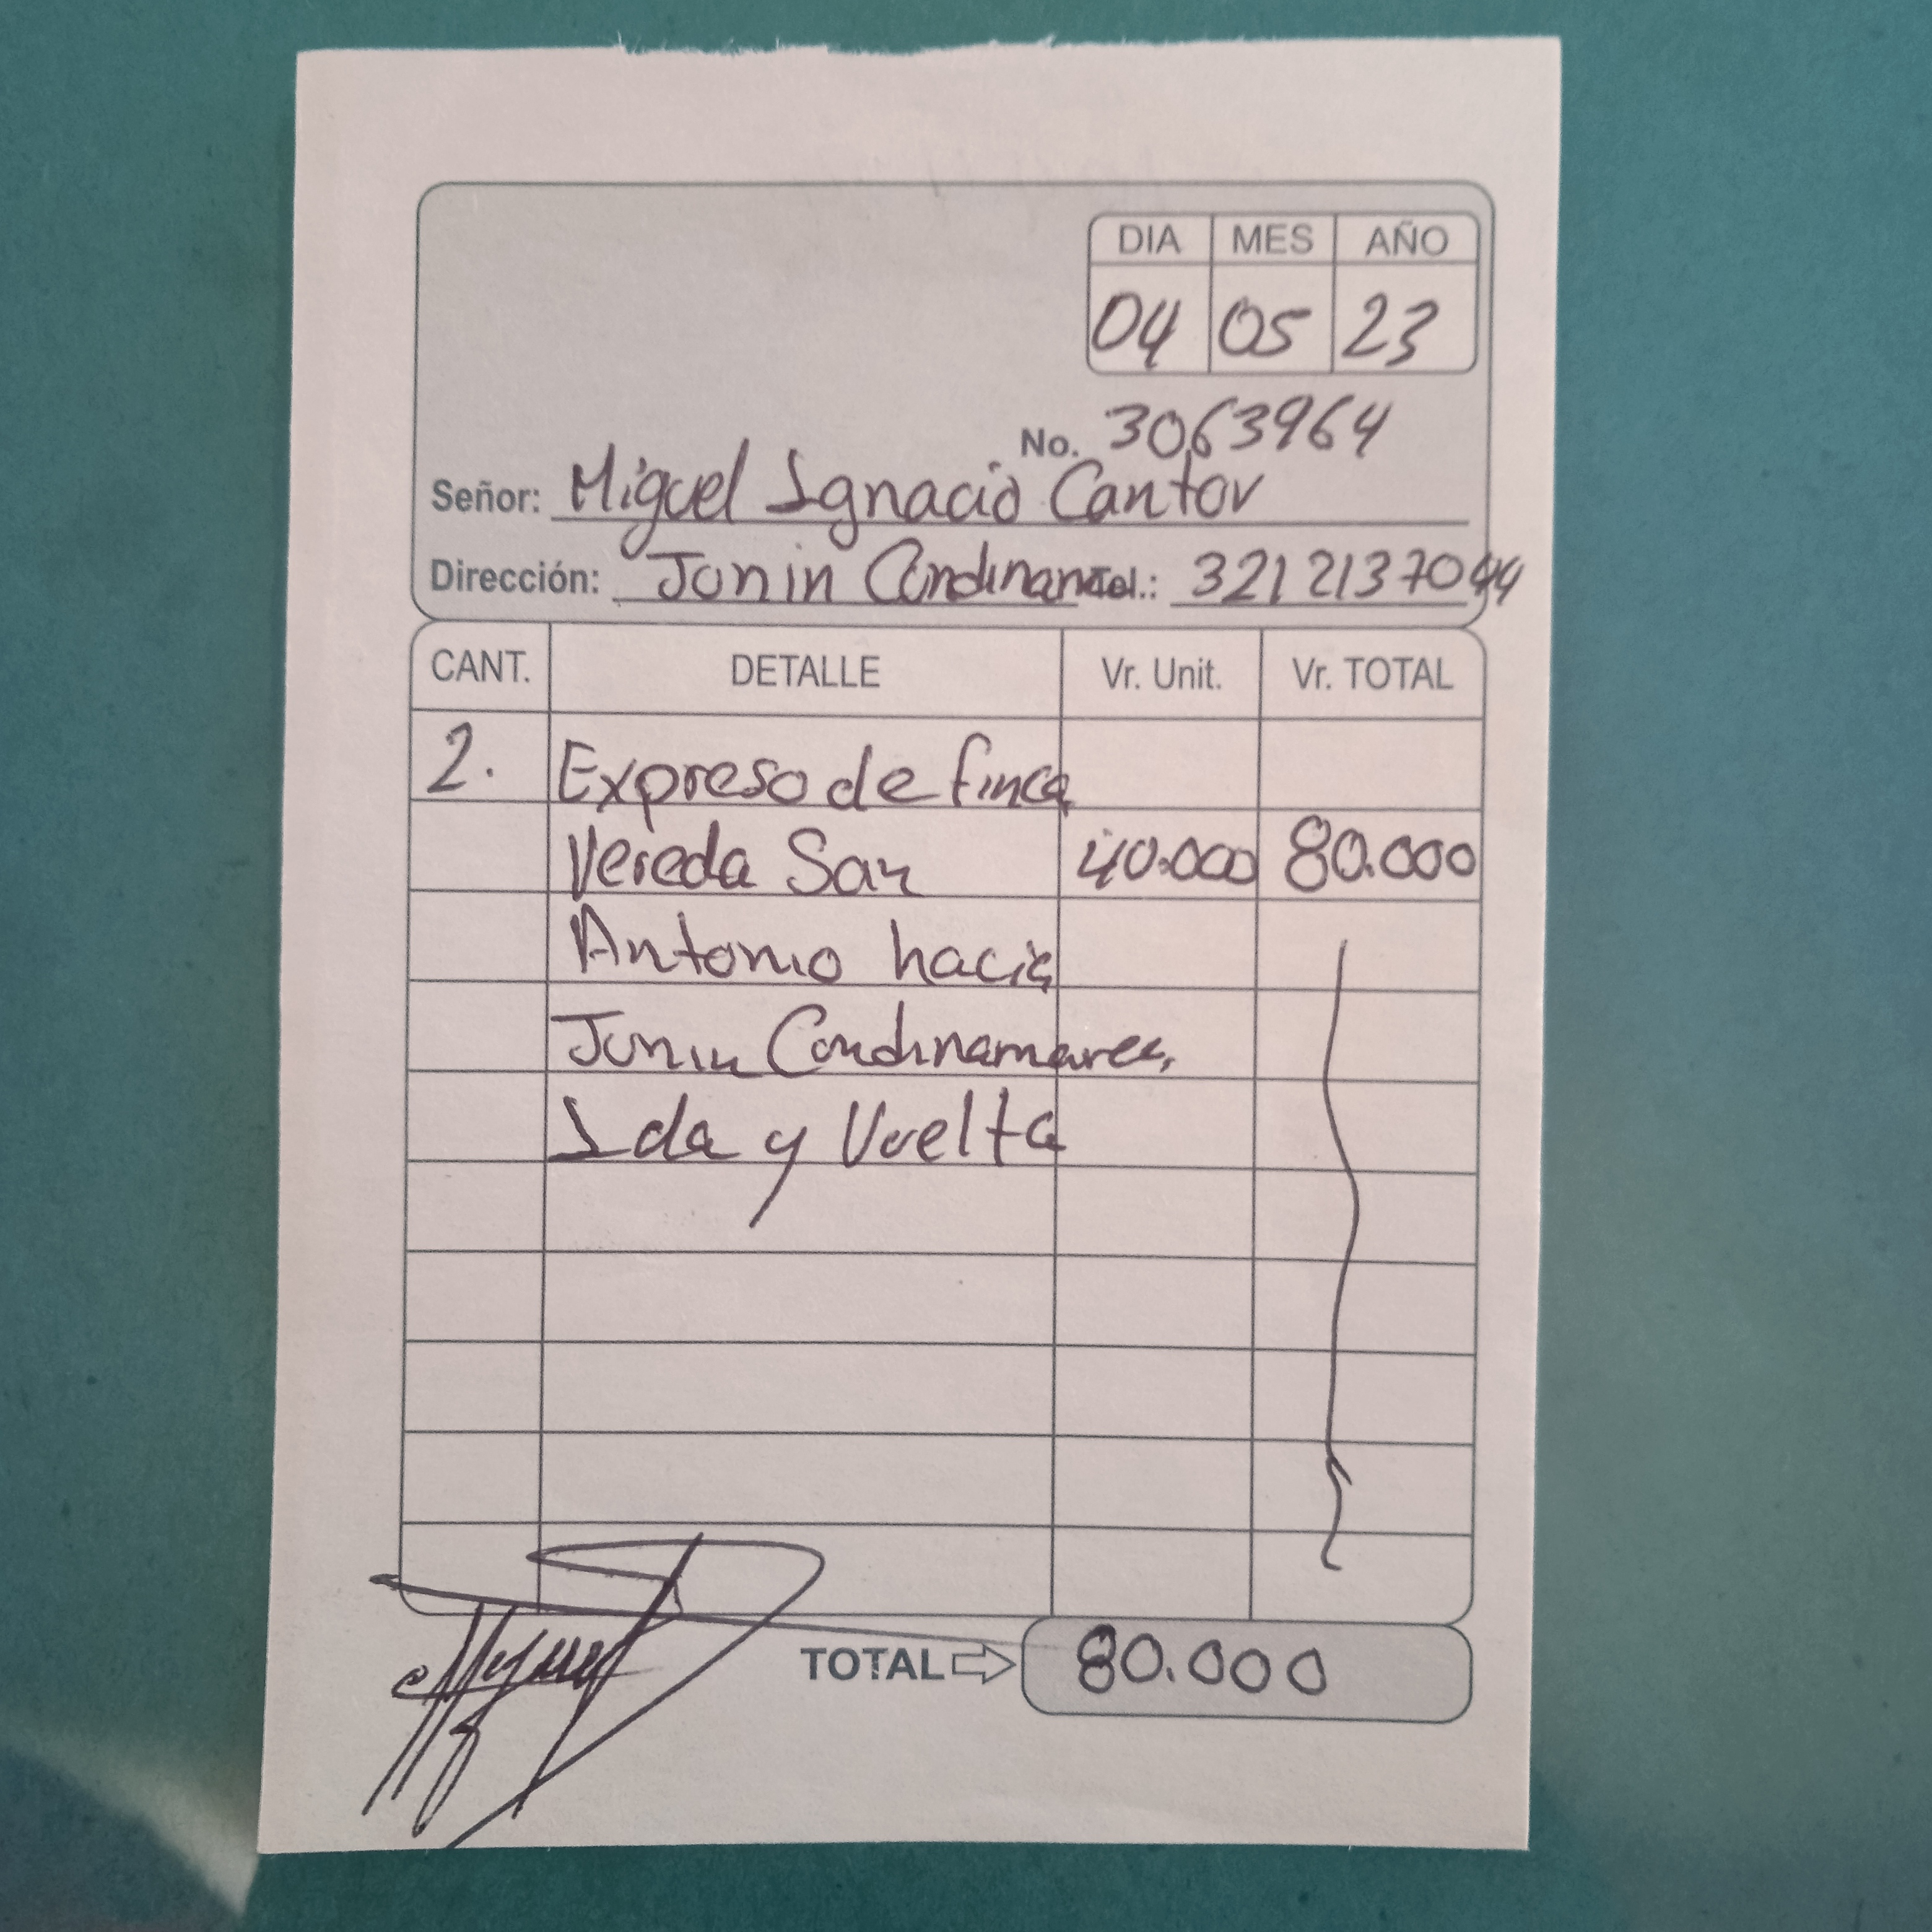 DIA MES AÑO
04 05 23
No. 3063964
Señor: Miguel Ignacio Cantor
Dirección: Junin Cundinam Tel.: 3212137044
CANT. DETALLE Vr. Unit. Vr. TOTAL
2. Expreso de finca
Vereda San 40.000 80.000
Antonio hacia
Junin Cundinamarca,
Ida y Vuelta
TOTAL 80.000